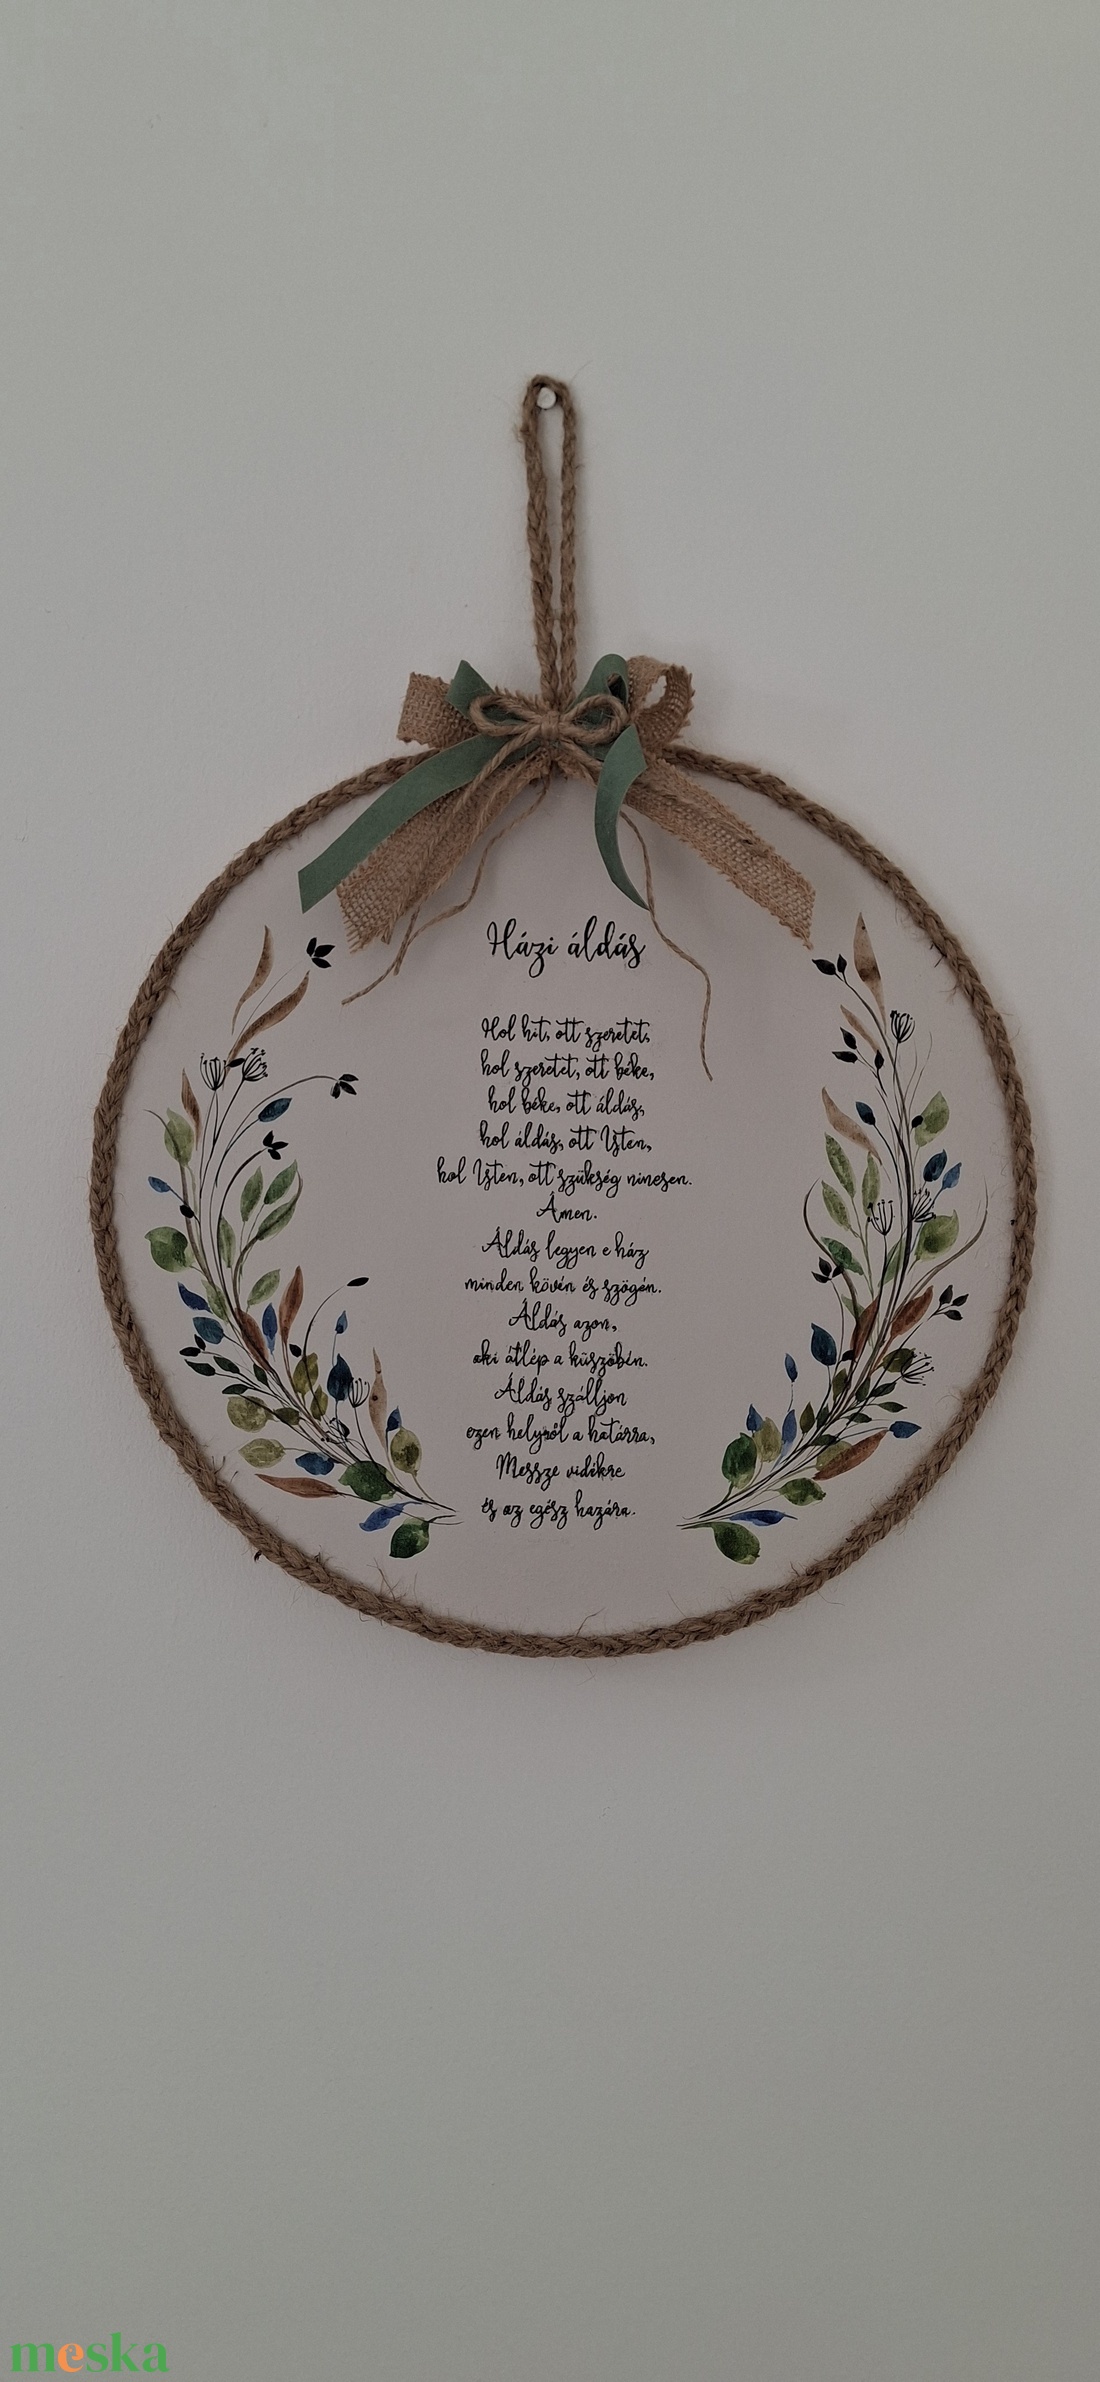 Házi áldás
Hol hit, ott szeretet,
hol szeretet, ott béke,
hol béke, ott áldás,
hol áldás, ott Isten,
hol Isten, ott szükség nincsen.
Ámen.
Áldás legyen e ház
minden kövén és szögén.
Áldás azon,
aki átlép a küszöbén.
Áldás szálljon
ezen helyről a határra,
Messze vidékre
és az egész hazára.
meska